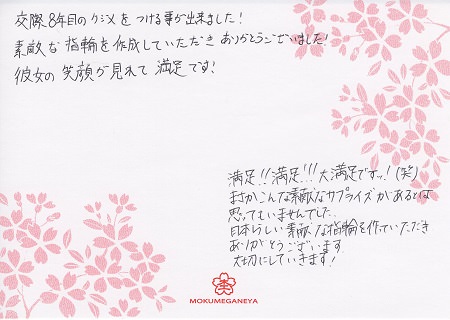 交際8年目のケジメをつける事が出来ました!
素敵な指輪を作成していただきありがとうございました!
彼女の笑顔が見れて満足です!
満足!!満足!!!大満足ですッ!(笑)
まさかこんな素敵なサプライズがあるとは
思ってもいませんでした
日本らしい素敵な指輪を作っていただき
ありがとうございます
大切にしていきます!
MOKUMEGANEYA